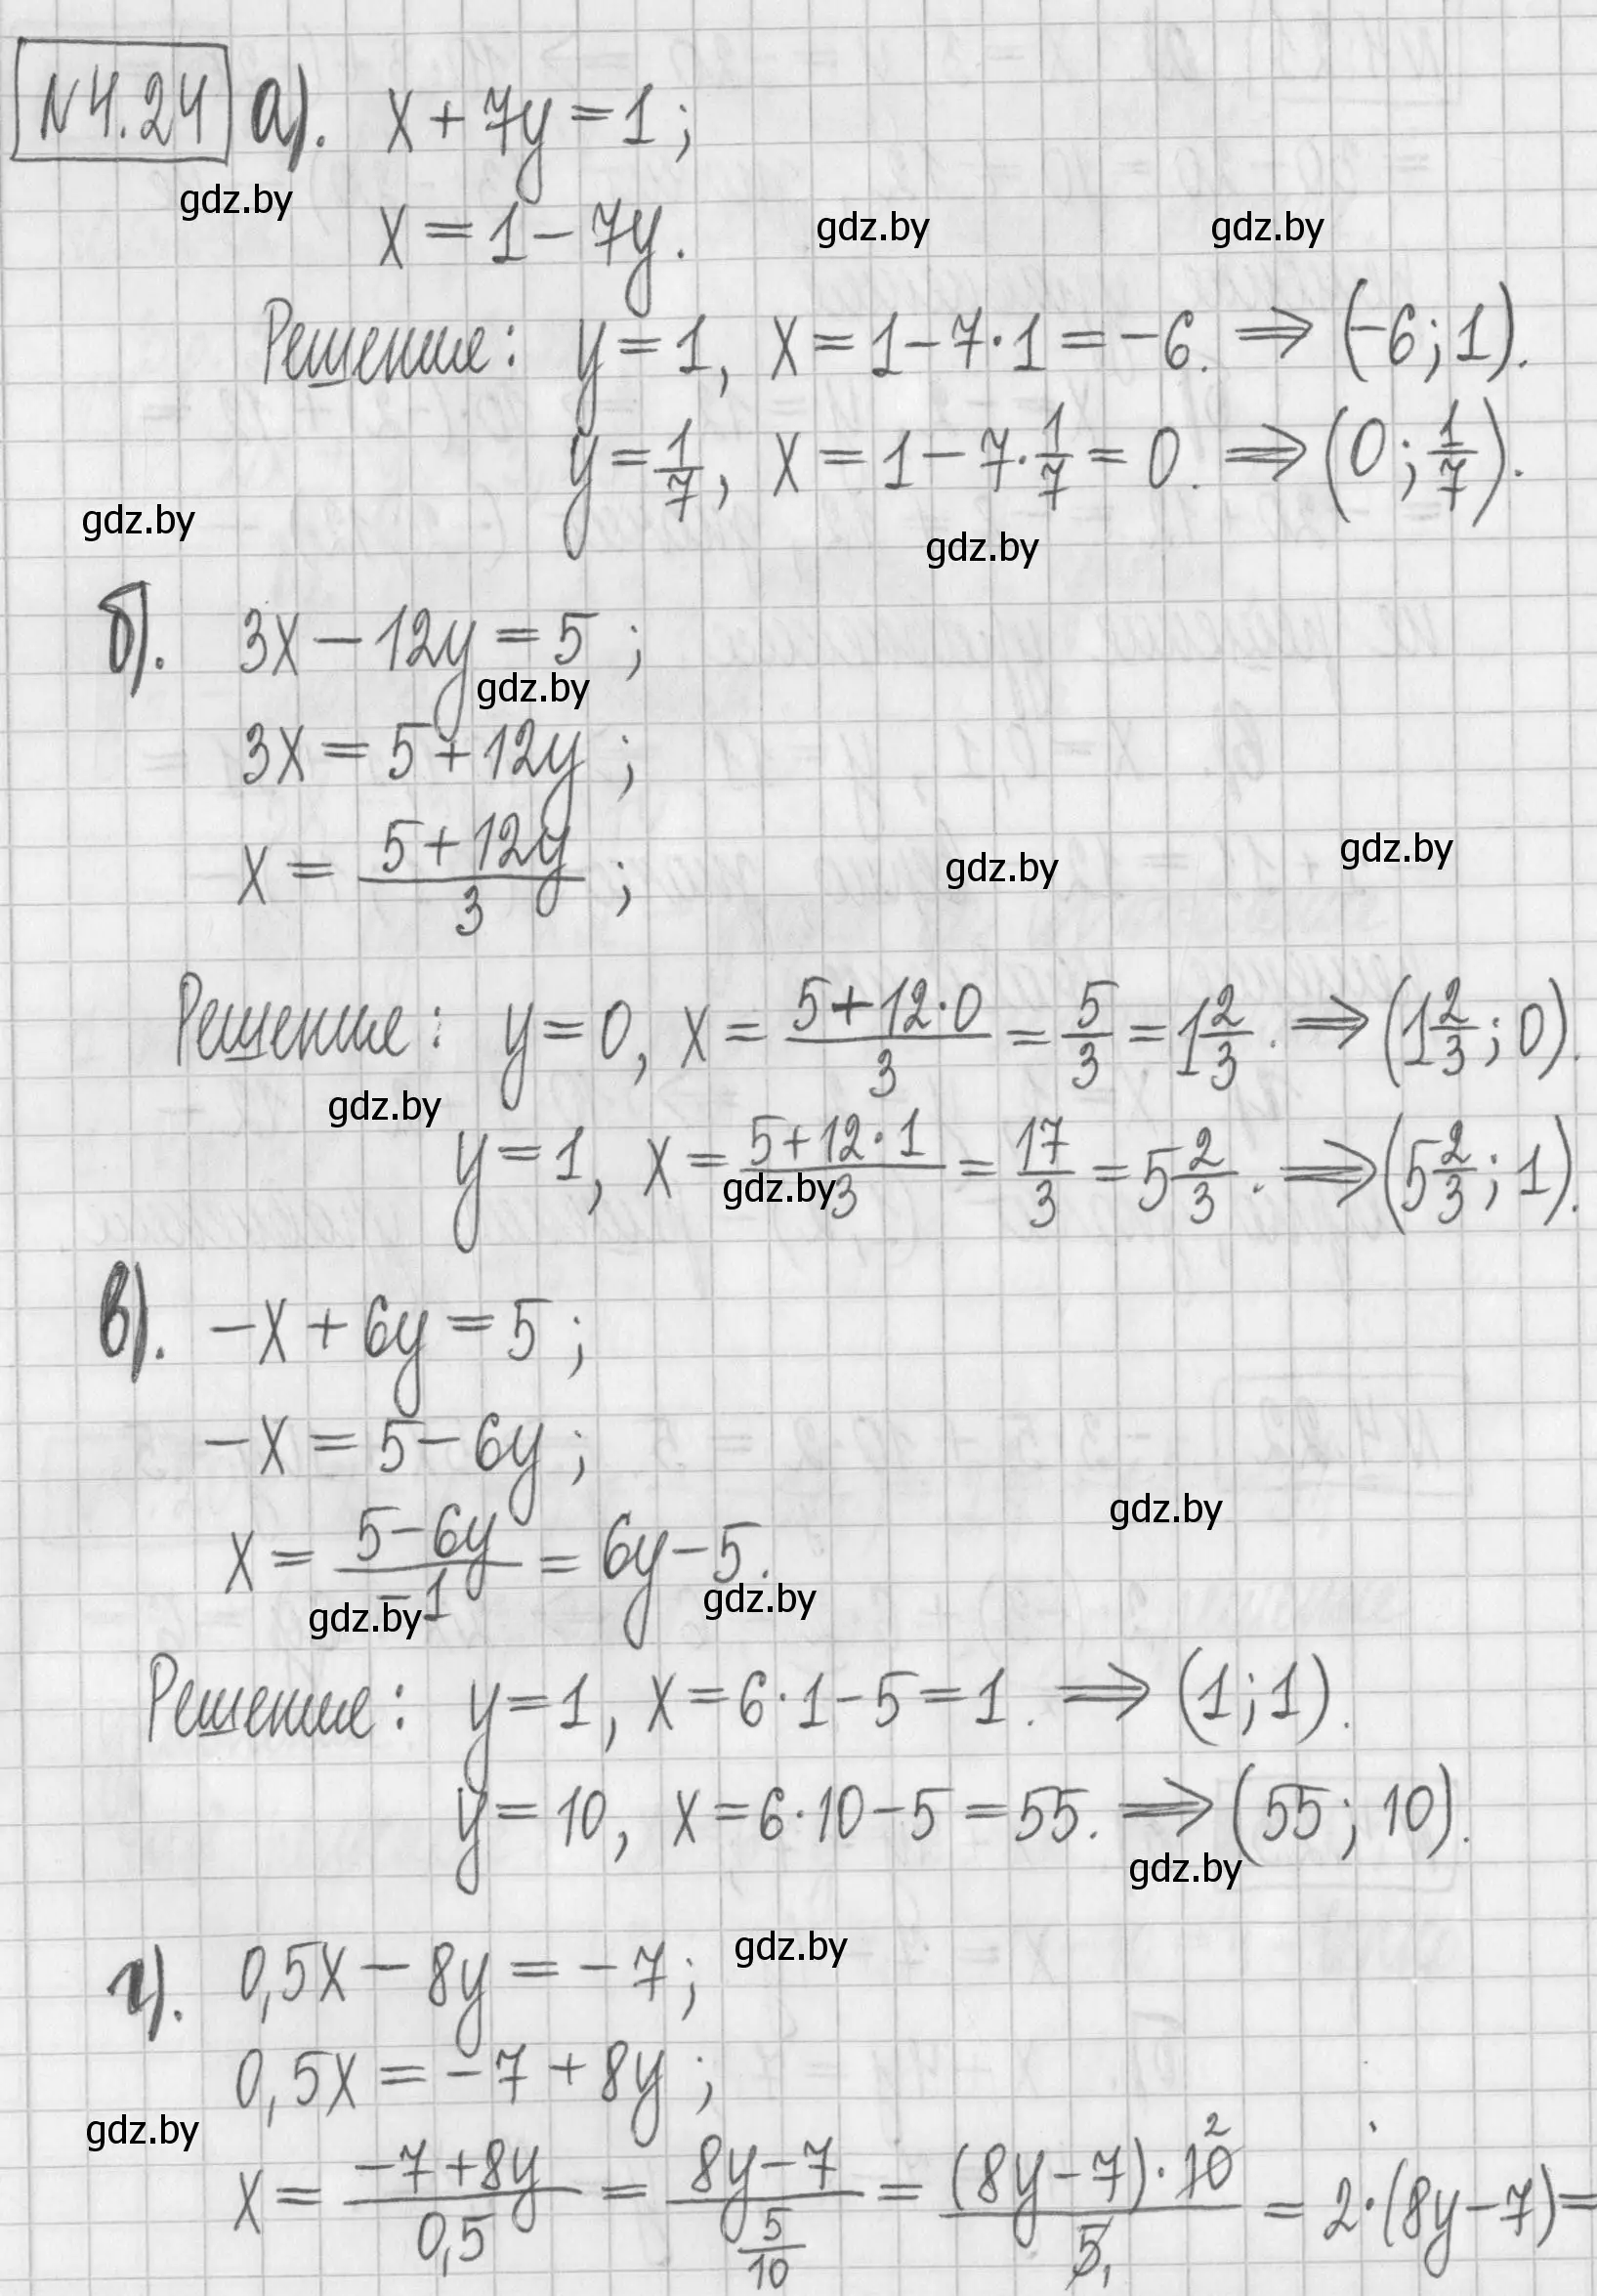 N4.24 а). x + 7y = 1;
gdz.by
x = 1 - 7y.
gdz.by gdz.by
Решение: y = 1, x = 1 - 7·1 = -6. ⇒ (-6; 1).
y = 1/7, x = 1 - 7·1/7 = 0. ⇒ (0; 1/7).
gdz.by
gdz.by
б). 3x - 12y = 5;
gdz.by
3x = 5 + 12y;
x = (5 + 12y)/3;
gdz.by gdz.by
Решение: y = 0, x = (5 + 12·0)/3 = 5/3 = 1 2/3. ⇒ (1 2/3; 0).
gdz.by
y = 1, x = (5 + 12·1)/3 = 17/3 = 5 2/3. ⇒ (5 2/3; 1).
gdz.by
в). -x + 6y = 5;
-x = 5 - 6y;
gdz.by
x = (5 - 6y)/(-1) = 6y - 5.
gdz.by gdz.by
Решение: y = 1, x = 6·1 - 5 = 1. ⇒ (1; 1).
y = 10, x = 6·10 - 5 = 55. ⇒ (55; 10).
gdz.by
gdz.by
г). 0,5x - 8y = -7;
0,5x = -7 + 8y;
gdz.by
x = (-7 + 8y)/0,5 = (8y - 7)/(5/10) = ((8y - 7)·10 2)/(5 1) = 2·(8y - 7) =